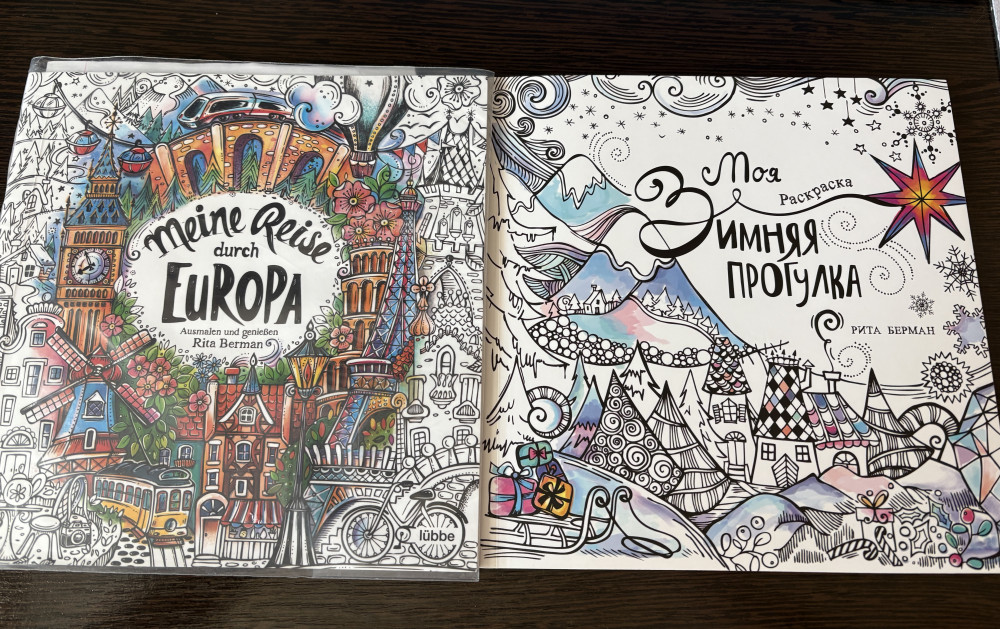 Meine Reise
durch
EUROPA
Ausmalen und genießen
Rita Berman
lübbe
Моя
Раскраска
Зимняя
ПРОГУЛКА
РИТА БЕРМАН